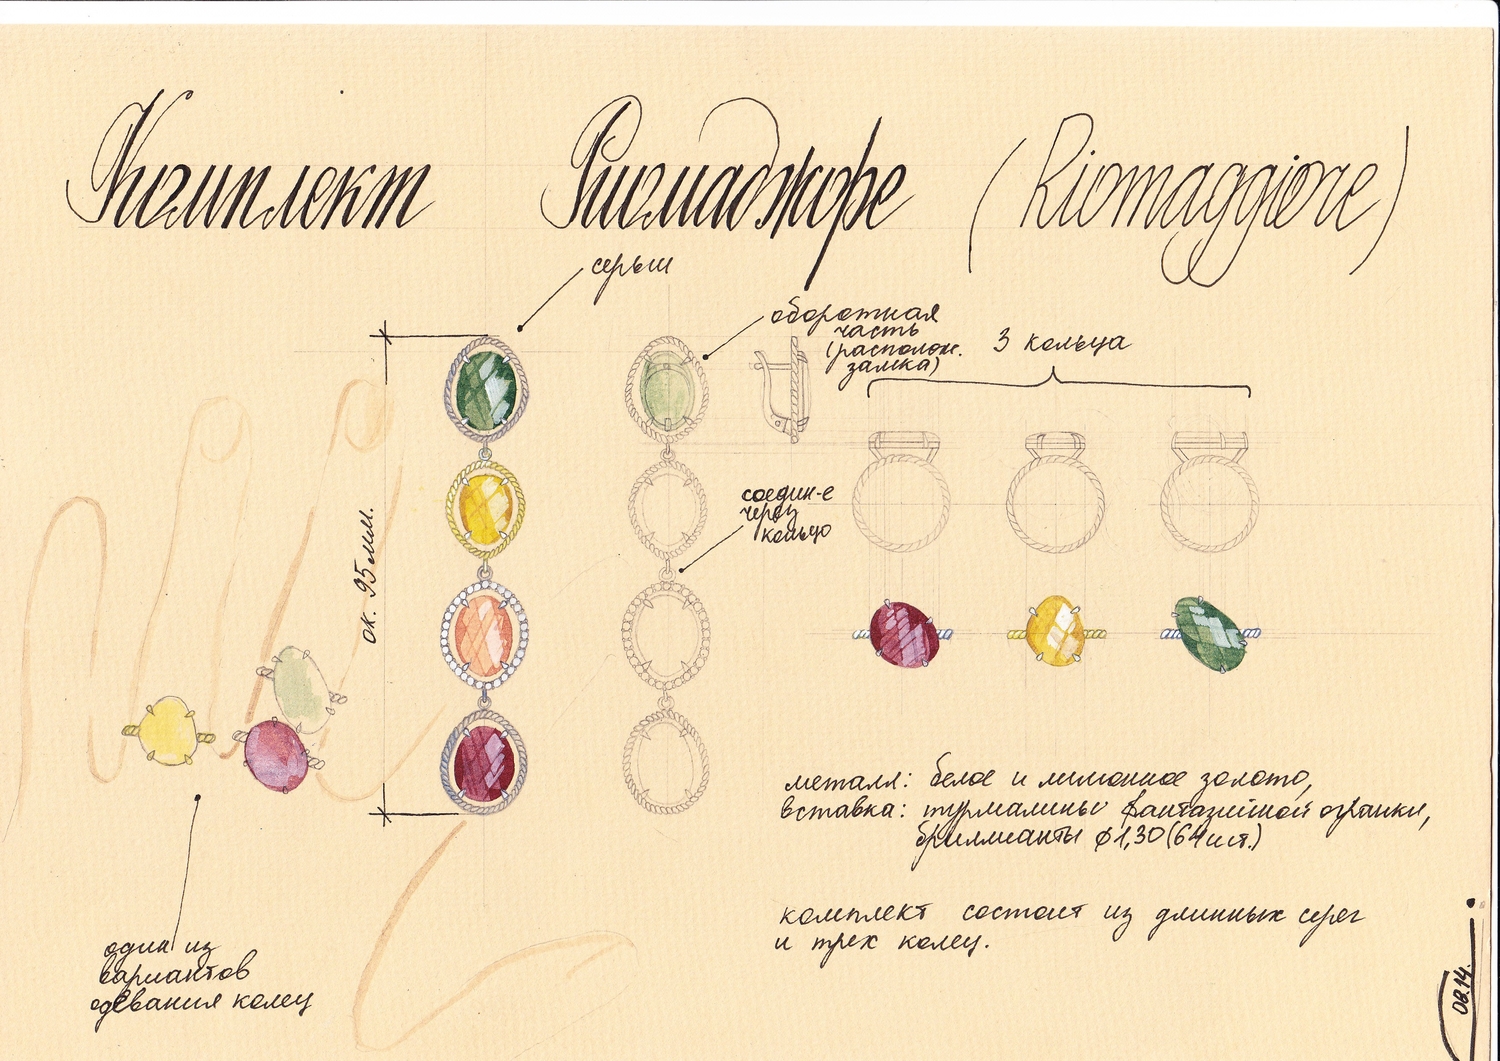 Комплект Риомаджоре (Riomaggiore)
серьги
оборотная
часть
(располож.
замка)
3 кольца
соедин-е
через
кольцо
ок. 95 мм.
металл: белое и лимонное золото,
вставка: турмалины фантазийной огранки,
бриллианты ф1,30 (64 шт.)
комплект состоит из длинных серег
и трех колец.
один из
вариантов
одевания колец
08.14.